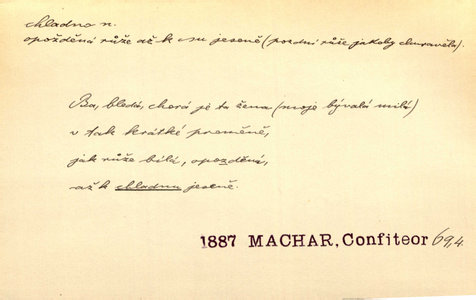 chladno n.
opožděná růže až k chladnu jeseně (pozdní růže jakoby churavěla).
Ba, bledá, chorá je ta žena (moje bývalá milá)
v tak krátké proměně,
jak růže bílá, opozděná,
až k chladnu jeseně.
1887 MACHAR, Confiteor 69,4